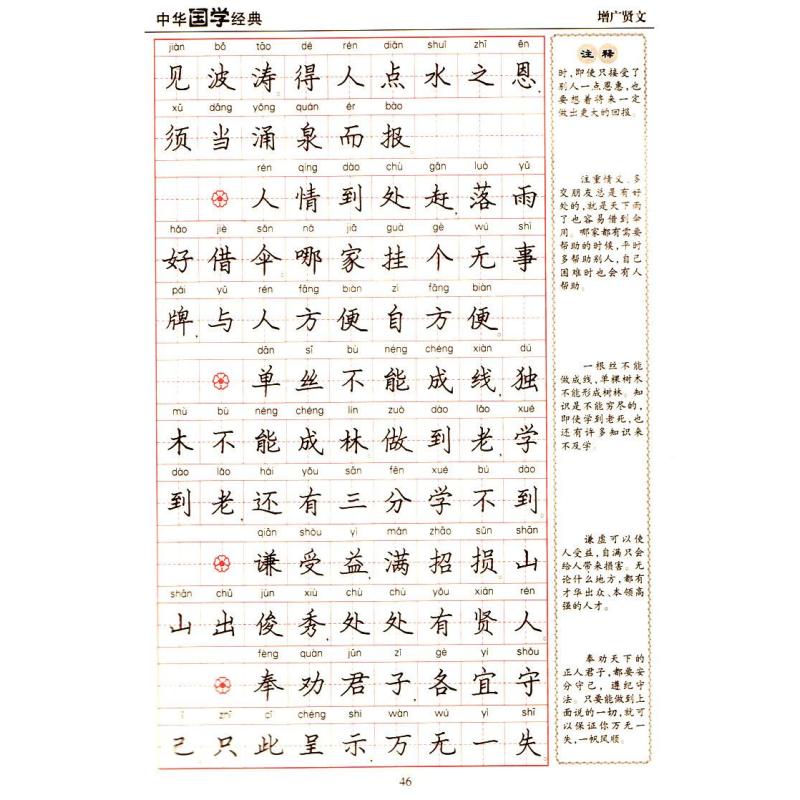 中华国学经典
增广贤文
jiàn bō tāo dé rén diǎn shuǐ zhī ēn
见波涛。得人点水之恩,
xū dāng yǒng quán ér bào
须当涌泉而报。
rén qíng dào chù gǎn luò yǔ
人情到处赶,落雨
hǎo jiè sǎn nǎ jiā guà gè wú shì
好借伞。哪家挂个无事
pái yǔ rén fāng biàn zì fāng biàn
牌,与人方便自方便。
dān sī bù néng chéng xiàn dú
单丝不能成线,独
mù bù néng chéng lín zuò dào lǎo xué
木不能成林。做到老,学
dào lǎo hái yǒu sān fēn xué bù dào
到老,还有三分学不到。
qiān shòu yì mǎn zhāo sǔn shān
谦受益,满招损。山
shān chū jùn xiù chù chù yǒu xián rén
山出俊秀,处处有贤人。
fèng quàn jūn zǐ gè yí shǒu
奉劝君子,各宜守
zhǐ cǐ chéng shì wàn wú yì shī
己。只此呈示,万无一失
注释
时,即使只接受了
别人一点恩惠,也
要想着将来一定
做出更大的回报。
注重情义、多
交朋友总是有好
处的,就是天下雨
了也容易借到伞
用。哪家都有需要
帮助的时候,平时
多帮助别人,自己
困难时也会有人
帮助。
一根丝不能
做成线,单棵树木
不能形成树林。知
识是不能穷尽的,
即使学到老死,也
还有许多知识来
不及学。
谦虚可以使
人受益,自满只会
给人带来损害。无
论什么地方,都有
才华出众、本领高
强的人才。
奉劝天下的
正人君子,都要安
分守己,遵纪守
法。只要能做到上
面说的一切,就可
以保证你万无一
失,一帆风顺。
46